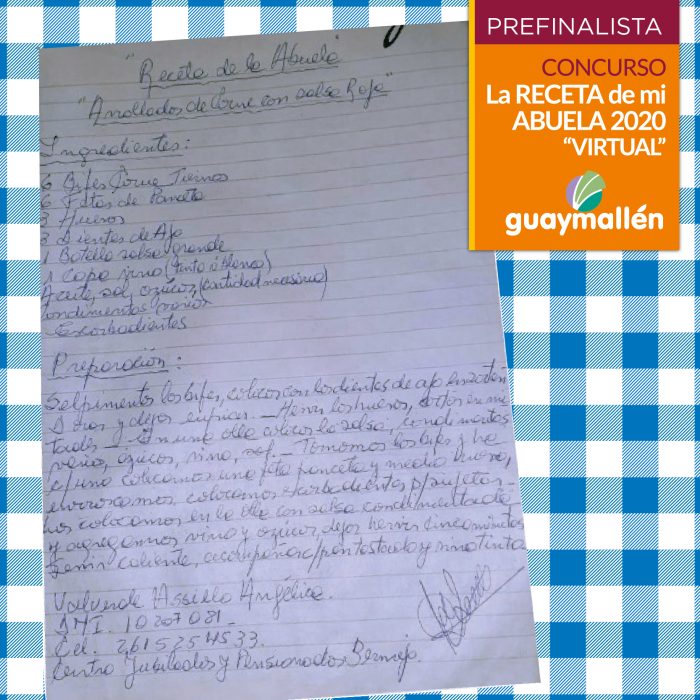 PREFINALISTA
CONCURSO
La RECETA de mi
ABUELA 2020
“VIRTUAL”
guaymallén
"Receta de la Abuela"
"Arrollados de Carne con salsa Roja"
Ingredientes:
6 Bifes Carne Tiernos
6 Fetas de Panceta
3 Huevos
3 Dientes de Ajo
1 Botella salsa grande
1 Copa vino (tinto ó blanco)
Aceite, sal, azúcar, (cantidad necesaria)
Condimentos varios
Escarbadientes
Preparación:
Salpimentar los bifes, colocar con los dientes de ajo
y dejar enfriar. - Hervir los huevos, cortar en mi
tades - En una olla colocar la salsa, condimentos
varios, azúcar, vino, sal. - Tomamos los bifes y ha
c/uno colocamos una feta panceta y medio huevo,
enroscamos, colocamos escarbadientes p/sujetar -
Los colocamos en la olla con salsa condimentada
y agregamos vino y azúcar, dejar hervir cinco minutos
Servir caliente, acompañar c/pan tostado y vino tinto.
Valverde Assielo Angélica.
DNI. 10207081.-
Cel. 2615254533.
Centro Jubilados y Pensionados Bermejo.